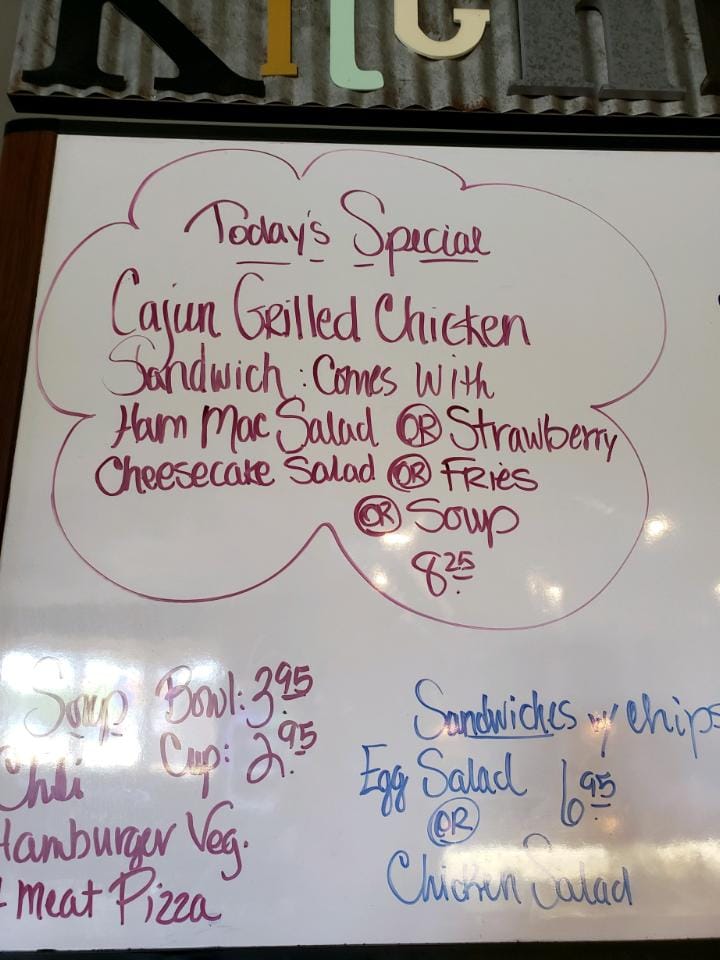 KITCH
Today's Special
Cajun Grilled Chicken
Sandwich : Comes With
Ham Mac Salad OR Strawberry
Cheesecake Salad OR Fries
OR Soup
8.25
Soup Bowl: 3.95
Cup: 2.95
Chili
Hamburger Veg.
Meat Pizza
Sandwiches w/ chips
Egg Salad 6.95
OR
Chicken Salad